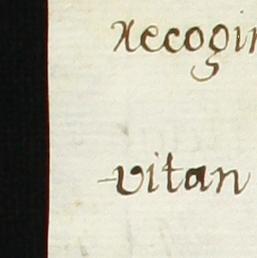 Recogin
vitan